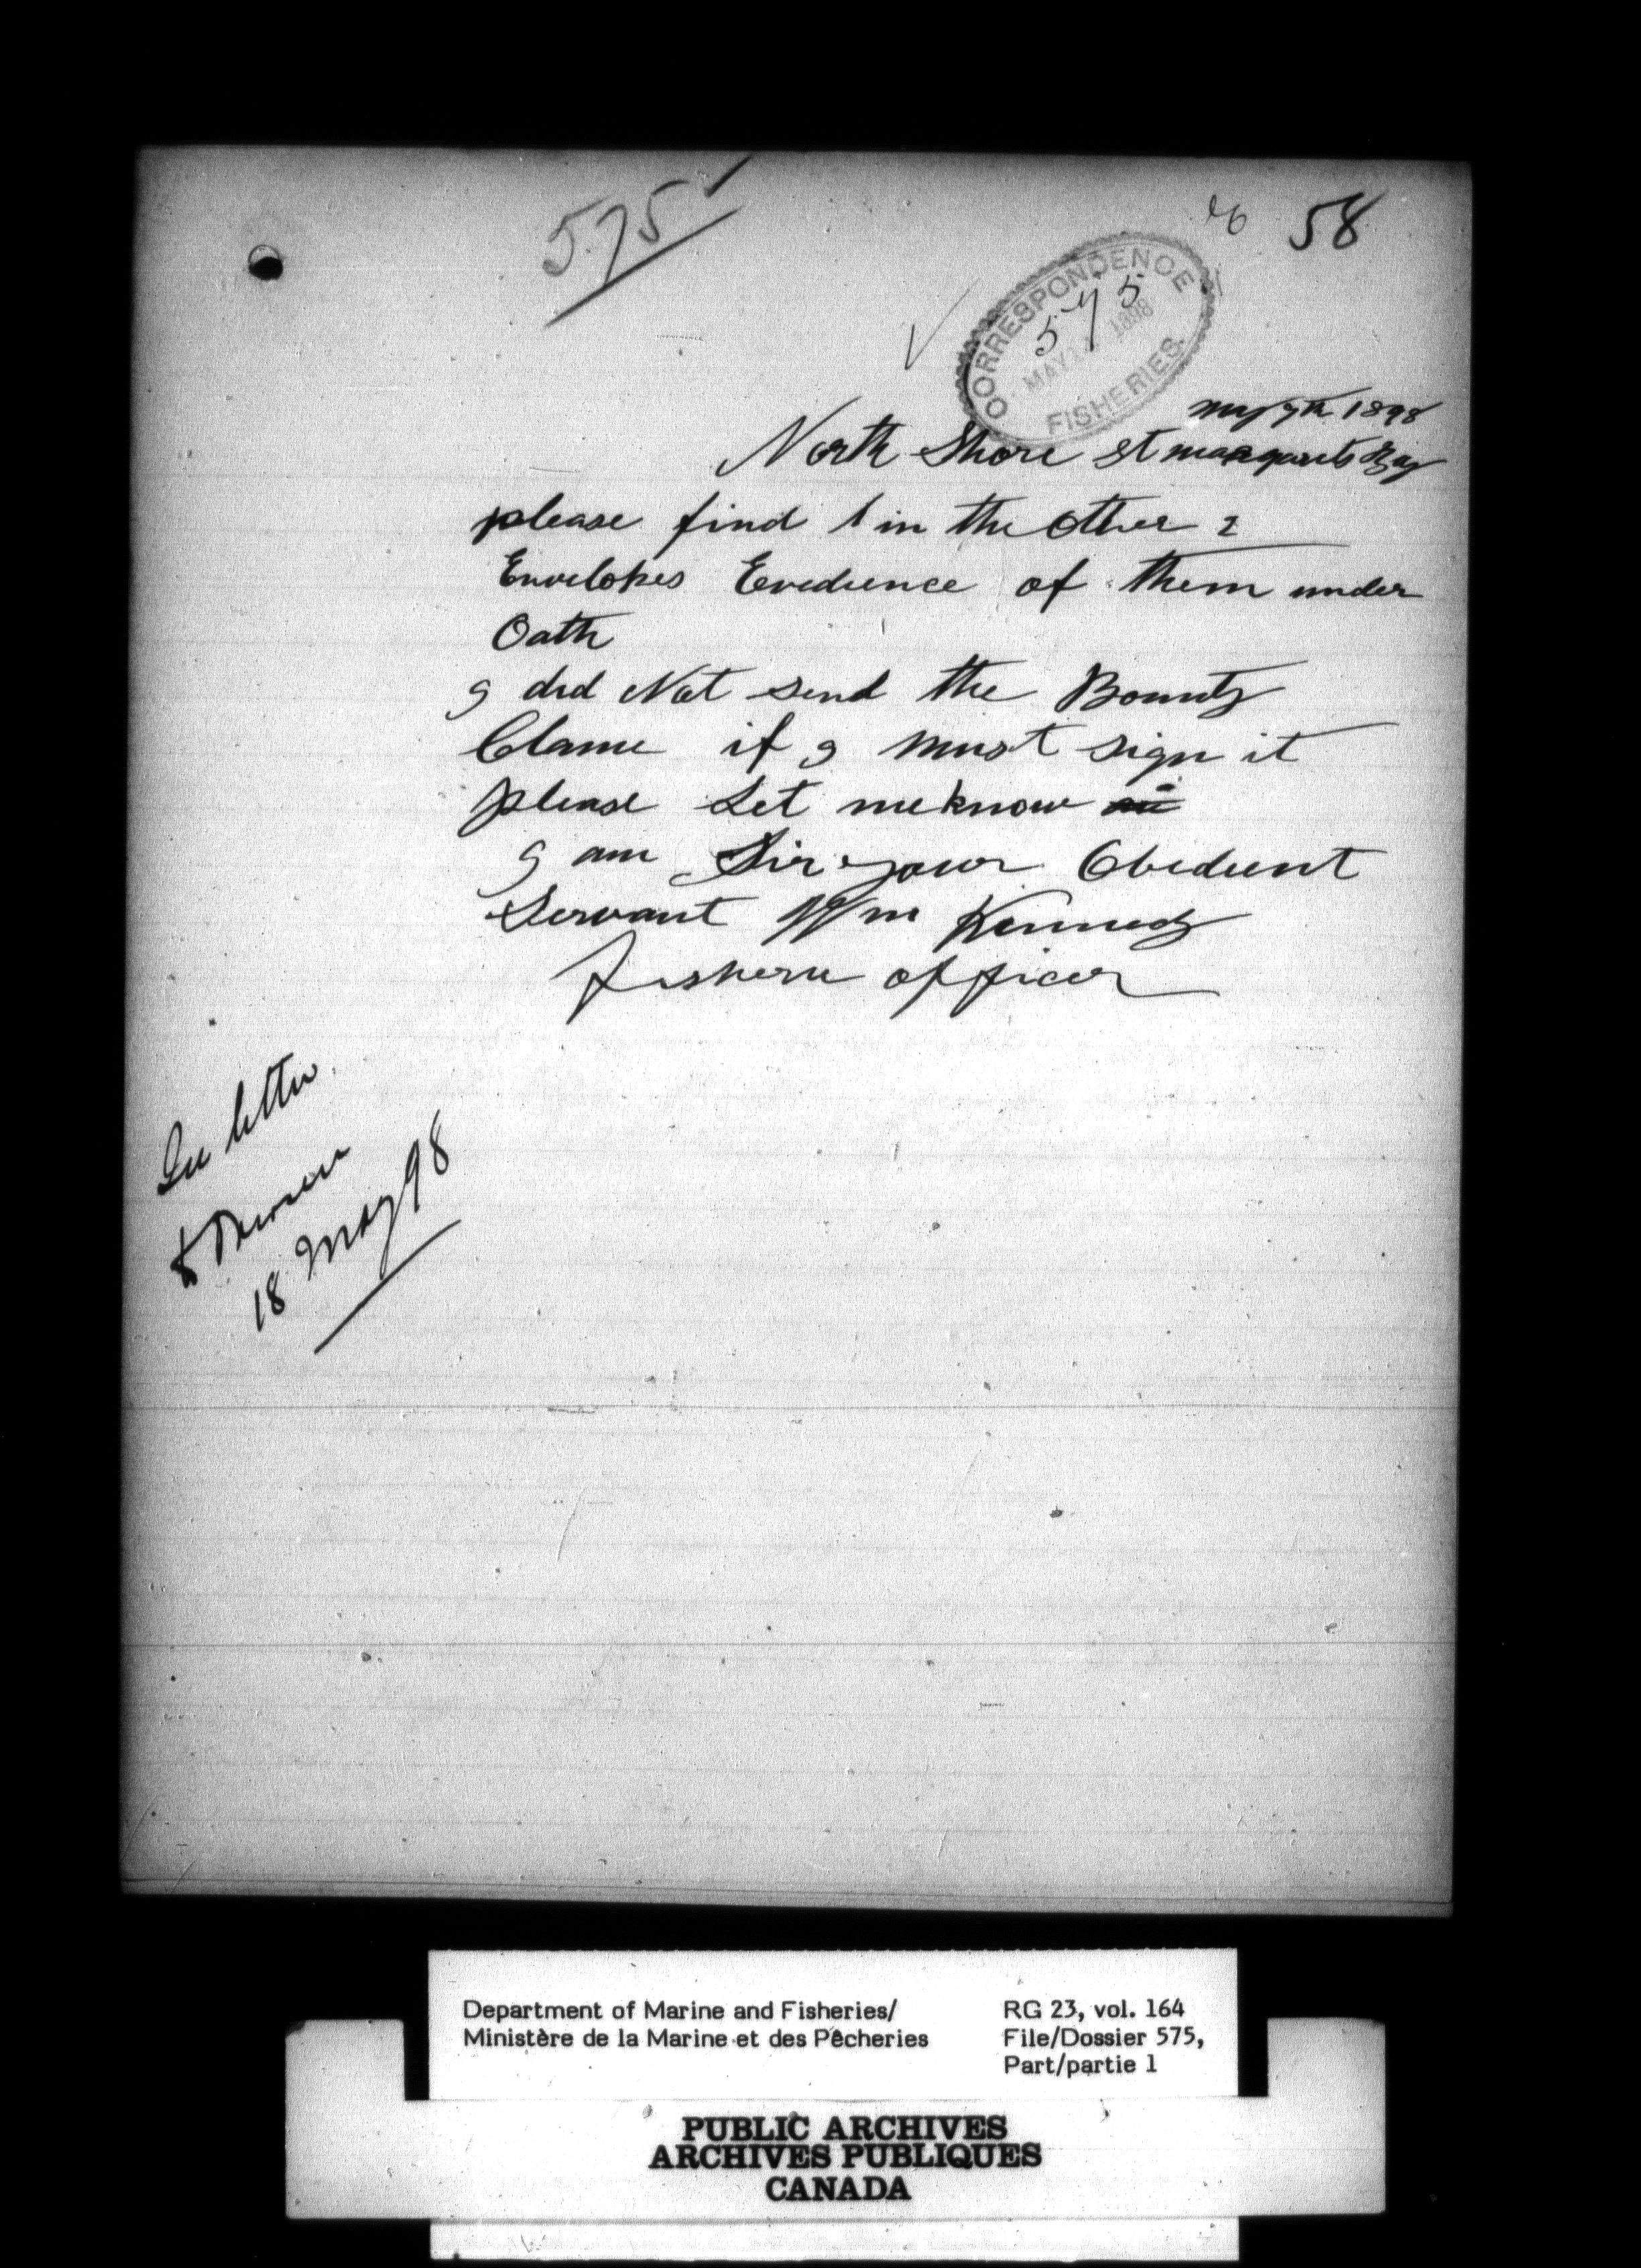 575
58
CORRESPONDENCE
575
MAY 1898
FISHERIES.
May 7th 1898
North Shore St margarets Bay
please find 1 in the other 2
Envelopes Evedience of them under
Oath
I did Not send the Bounty
Clame if I must sign it
please Let me know
I am Sir your Obedient
Servant Wm Kennedy
Fisherie officer
See letter
18 May 98
Department of Marine and Fisheries/
Ministère de la Marine et des Pêcheries
RG 23, vol. 164
File/Dossier 575,
Part/partie 1
PUBLIC ARCHIVES
ARCHIVES PUBLIQUES
CANADA